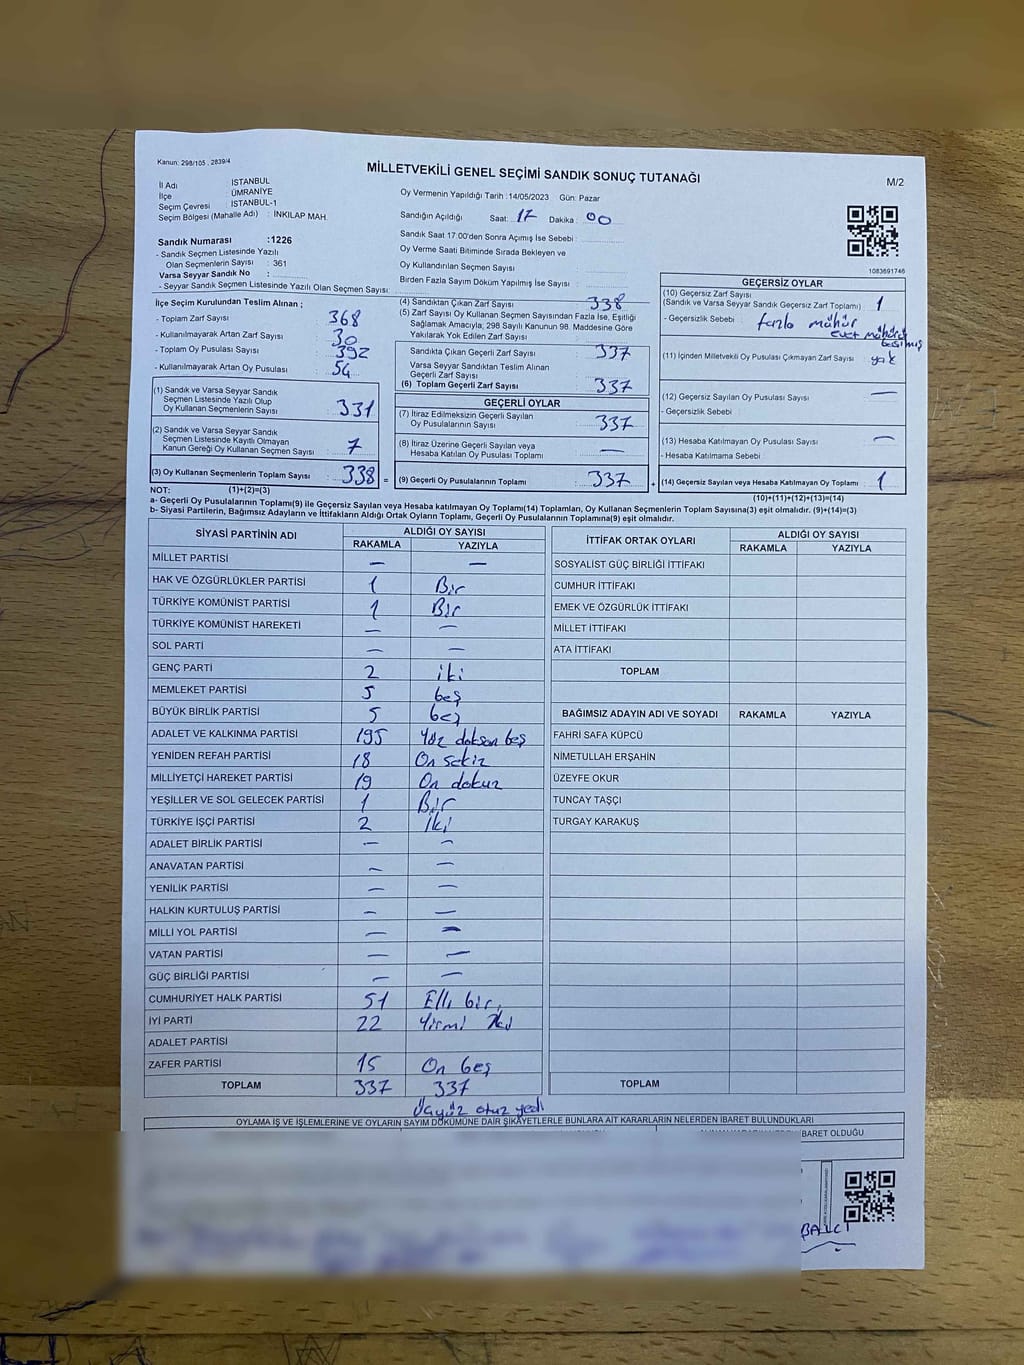 Kanun: 298/105 , 2839/4
MİLLETVEKİLİ GENEL SEÇİMİ SANDIK SONUÇ TUTANAĞI
M/2
İl Adı : İSTANBUL
İlçe : ÜMRANİYE
Seçim Çevresi : İSTANBUL-1
Seçim Bölgesi (Mahalle Adı) : İNKILAP MAH.
Oy Vermenin Yapıldığı Tarih :14/05/2023 Gün: Pazar
Sandığın Açıldığı Saat: 17 Dakika : 00
Sandık Saat 17:00'den Sonra Açılmış İse Sebebi :
Oy Verme Saati Bitiminde Sırada Bekleyen ve
Oy Kullandırılan Seçmen Sayısı
Birden Fazla Sayım Döküm Yapılmış İse Sayısı :
Sandık Numarası :1226
- Sandık Seçmen Listesinde Yazılı
Olan Seçmenlerin Sayısı : 361
Varsa Seyyar Sandık No :
- Seyyar Sandık Seçmen Listesinde Yazılı Olan Seçmen Sayısı:
1083691746
İlçe Seçim Kurulundan Teslim Alınan ;
- Toplam Zarf Sayısı 368
- Kullanılmayarak Artan Zarf Sayısı 30
- Toplam Oy Pusulası Sayısı 392
- Kullanılmayarak Artan Oy Pusulası 54
(1) Sandık ve Varsa Seyyar Sandık
Seçmen Listesinde Yazılı Olup
Oy Kullanan Seçmenlerin Sayısı : 331
(2) Sandık ve Varsa Seyyar Sandık
Seçmen Listesinde Kayıtlı Olmayan
Kanun Gereği Oy Kullanan Seçmen Sayısı : 7
(3) Oy Kullanan Seçmenlerin Toplam Sayısı : 338 =
(4) Sandıktan Çıkan Zarf Sayısı : 338
(5) Zarf Sayısı Oy Kullanan Seçmen Sayısından Fazla İse, Eşitliği
Sağlamak Amacıyla; 298 Sayılı Kanunun 98. Maddesine Göre
Yakılarak Yok Edilen Zarf Sayısı
Sandıkta Çıkan Geçerli Zarf Sayısı : 337
Varsa Seyyar Sandıktan Teslim Alınan
Geçerli Zarf Sayısı
(6) Toplam Geçerli Zarf Sayısı : 337
GEÇERLİ OYLAR
(7) İtiraz Edilmeksizin Geçerli Sayılan
Oy Pusulalarının Sayısı : 337
(8) İtiraz Üzerine Geçerli Sayılan veya
Hesaba Katılan Oy Pusulası Toplamı : —
(9) Geçerli Oy Pusulalarının Toplamı : 337 +
GEÇERSİZ OYLAR
(10) Geçersiz Zarf Sayısı
(Sandık ve Varsa Seyyar Sandık Geçersiz Zarf Toplamı) : 1
- Geçersizlik Sebebi : fazla mühür
evet mühürü
basılmış
(11) İçinden Milletvekili Oy Pusulası Çıkmayan Zarf Sayısı : yok
(12) Geçersiz Sayılan Oy Pusulası Sayısı : —
- Geçersizlik Sebebi :
(13) Hesaba Katılmayan Oy Pusulası Sayısı : —
- Hesaba Katılmama Sebebi
(14) Geçersiz Sayılan veya Hesaba Katılmayan Oy Toplamı : 1
NOT: (1)+(2)=(3) (10)+(11)+(12)+(13)=(14)
a- Geçerli Oy Pusulalarının Toplamı(9) ile Geçersiz Sayılan veya Hesaba katılmayan Oy Toplamı(14) Toplamları, Oy Kullanan Seçmenlerin Toplam Sayısına(3) eşit olmalıdır. (9)+(14)=(3)
b- Siyasi Partilerin, Bağımsız Adayların ve İttifakların Aldığı Ortak Oyların Toplamı, Geçerli Oy Pusulalarının Toplamına(9) eşit olmalıdır.
SİYASİ PARTİNİN ADI ALDIĞI OY SAYISI
RAKAMLA YAZIYLA
MİLLET PARTİSİ — —
HAK VE ÖZGÜRLÜKLER PARTİSİ 1 Bir
TÜRKİYE KOMÜNİST PARTİSİ 1 Bir
TÜRKİYE KOMÜNİST HAREKETİ — —
SOL PARTİ — —
GENÇ PARTİ 2 iki
MEMLEKET PARTİSİ 5 beş
BÜYÜK BİRLİK PARTİSİ 5 beş
ADALET VE KALKINMA PARTİSİ 195 Yüz doksan beş
YENİDEN REFAH PARTİSİ 18 On sekiz
MİLLİYETÇİ HAREKET PARTİSİ 19 On dokuz
YEŞİLLER VE SOL GELECEK PARTİSİ 1 Bir
TÜRKİYE İŞÇİ PARTİSİ 2 İki
ADALET BİRLİK PARTİSİ — —
ANAVATAN PARTİSİ — —
YENİLİK PARTİSİ — —
HALKIN KURTULUŞ PARTİSİ — —
MİLLİ YOL PARTİSİ — —
VATAN PARTİSİ — —
GÜÇ BİRLİĞİ PARTİSİ — —
CUMHURİYET HALK PARTİSİ 51 Elli bir
İYİ PARTİ 22 Yirmi iki
ADALET PARTİSİ
ZAFER PARTİSİ 15 On beş
TOPLAM 337 337
Üçyüz otuz yedi
İTTİFAK ORTAK OYLARI ALDIĞI OY SAYISI
RAKAMLA YAZIYLA
SOSYALİST GÜÇ BİRLİĞİ İTTİFAKI
CUMHUR İTTİFAKI
EMEK VE ÖZGÜRLÜK İTTİFAKI
MİLLET İTTİFAKI
ATA İTTİFAKI
TOPLAM
BAĞIMSIZ ADAYIN ADI VE SOYADI RAKAMLA YAZIYLA
FAHRİ SAFA KÜPCÜ
NİMETULLAH ERŞAHİN
ÜZEYFE OKUR
TUNCAY TAŞÇI
TURGAY KARAKUŞ
TOPLAM
OYLAMA İŞ VE İŞLEMLERİNE VE OYLARIN SAYIM DÖKÜMÜNE DAİR ŞİKAYETLERLE BUNLARA AİT KARARLARIN NELERDEN İBARET BULUNDUKLARI
İBARET OLDUĞU
BALCI